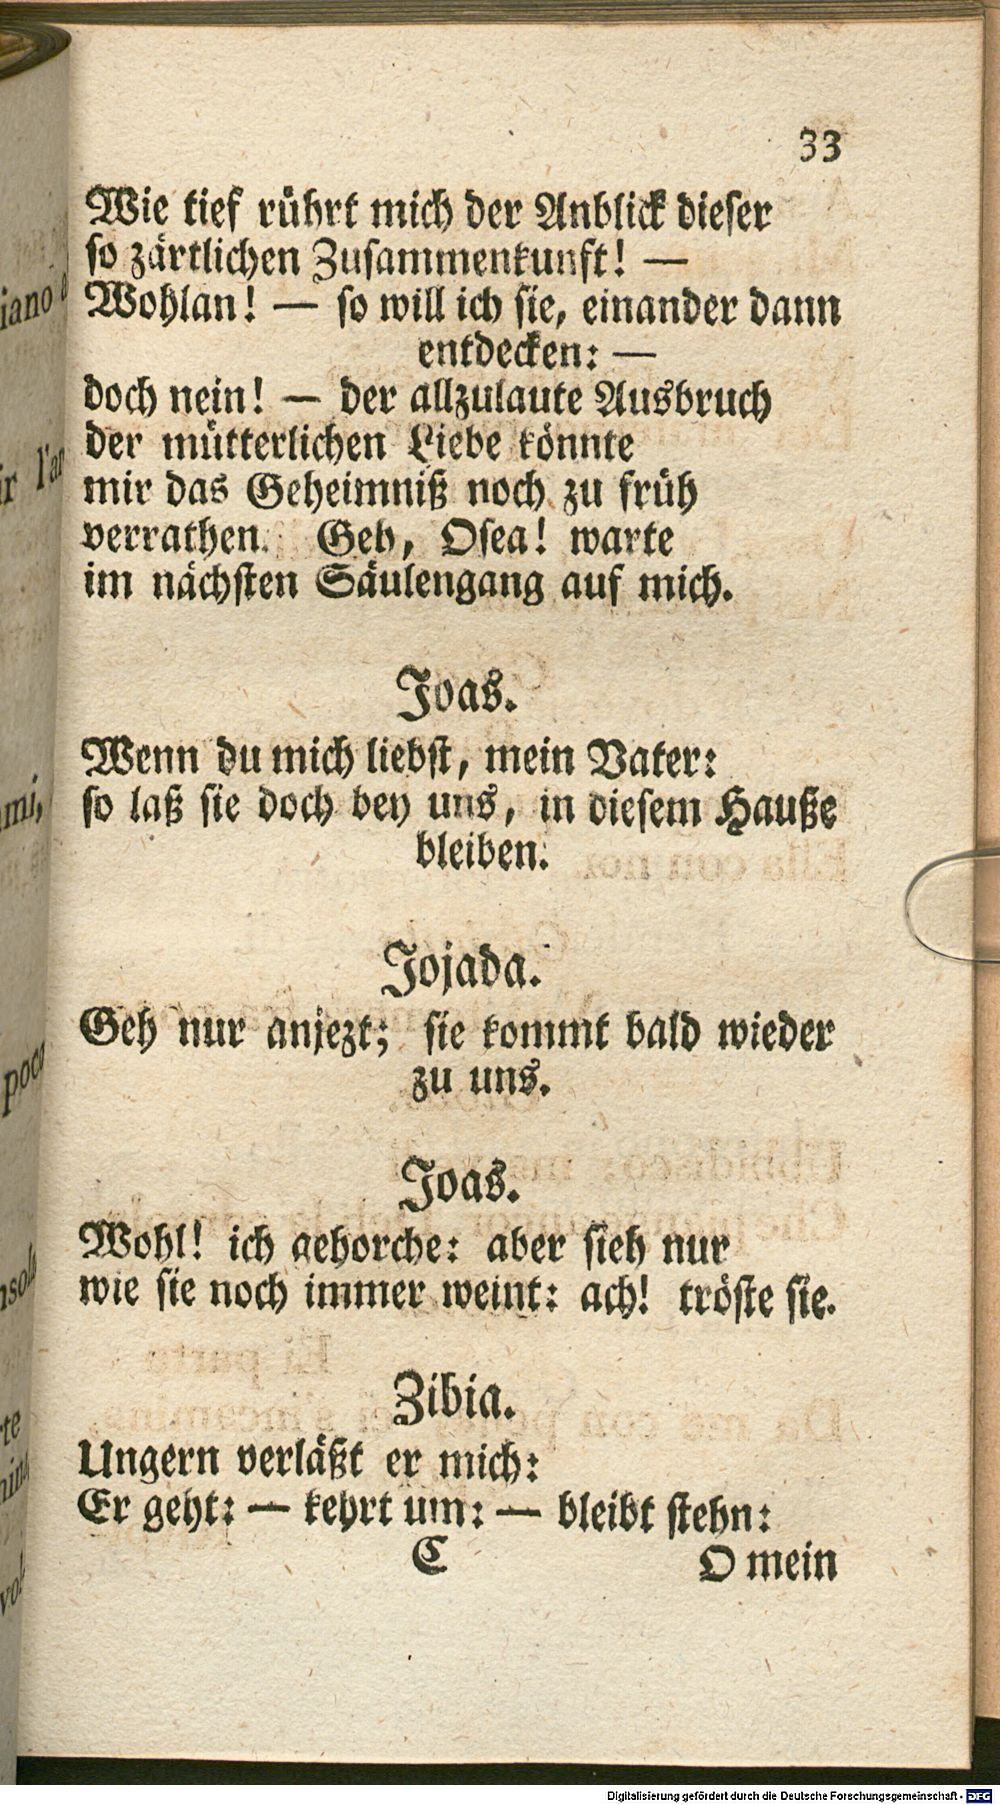 33
Wie tief rührt mich der Anblick dieser
so zärtlichen Zusammenkunft! —
Wohlan! — so will ich sie, einander dann
entdecken: —
doch nein! — der allzulaute Ausbruch
der mütterlichen Liebe könnte
mir das Geheimniß noch zu früh
verrathen. Geh, Osea! warte
im nächsten Säulengang auf mich.
Joas.
Wenn du mich liebst, mein Vater:
so laß sie doch bey uns, in diesem Hauße
bleiben.
Jojada.
Geh nur anjezt; sie kommt bald wieder
zu uns.
Joas.
Wohl! ich gehorche: aber sieh nur
wie sie noch immer weint: ach! tröste sie.
Zibia.
Ungern verläßt er mich:
Er geht: — kehrt um: — bleibt stehn:
C O mein
iano
ir l'ar
mi,
poco
Digitalisierung gefördert durch die Deutsche Forschungsgemeinschaft - DFG